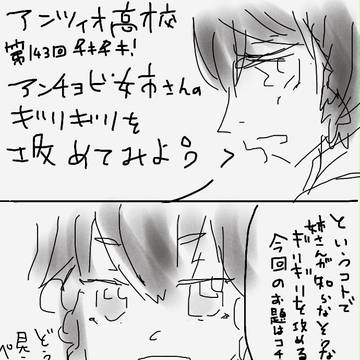 アンツィオ高校
第143回 チキチキ!
アンチョビ姉さんの
ギリギリを
攻めてみよう
というコトで
姉さんが知らなそうな
ギリギリを攻める
今回のお題はコチ
どう